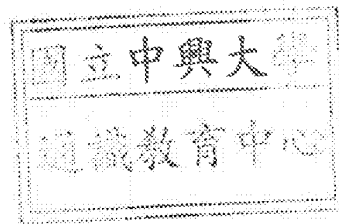 國立中興大學
通識教育中心